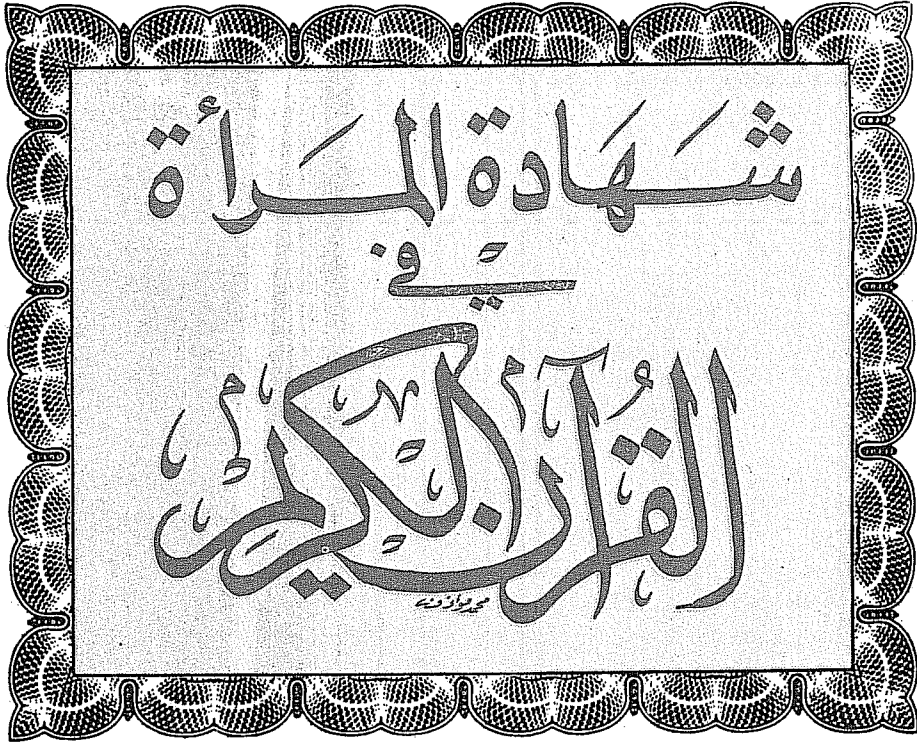 شهادة المرأة
في
القرآن الكريم